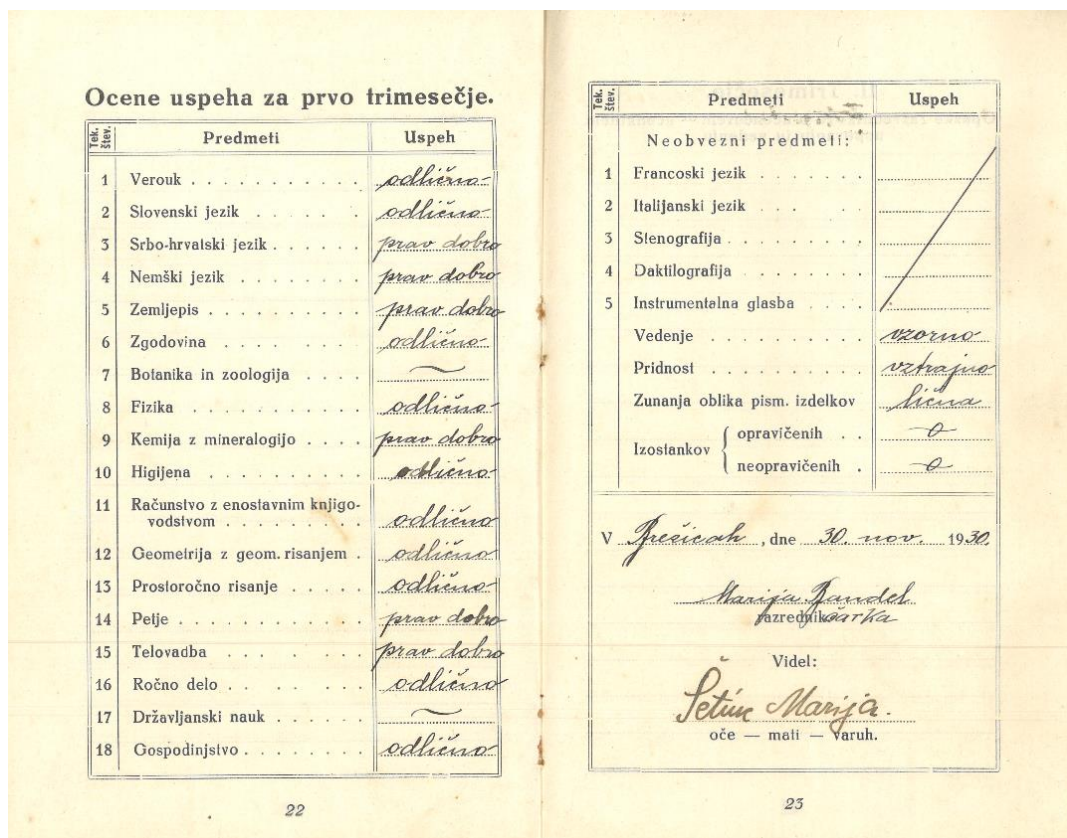 Ocene uspeha za prvo trimesečje.
Tek. štev. Predmeti Uspeh
1 Verouk . . . . . . . . . . . odlično
2 Slovenski jezik . . . . . . odlično
3 Srbo-hrvatski jezik . . . . . . prav dobro
4 Nemški jezik . . . . . . . . . prav dobro
5 Zemljepis . . . . . . . . . . prav dobro
6 Zgodovina . . . . . . . . . odlično
7 Botanika in zoologija . . . . —
8 Fizika . . . . . . . . . . . odlično
9 Kemija z mineralogijo . . . . prav dobro
10 Higijena . . . . . . . . . . odlično
11 Računstvo z enostavnim knjigo-
vodstvom . . . . . . . . . odlično
12 Geometrija z geom. risanjem . odlično
13 Prostoročno risanje . . . . . odlično
14 Petje . . . . . . . . . . . . prav dobro
15 Telovadba . . . . . . . . prav dobro
16 Ročno delo . . . . . . . . odlično
17 Državljanski nauk . . . . . . —
18 Gospodinjstvo . . . . . . . . odlično
22
Tek. štev. Predmeti Uspeh
Neobvezni predmeti:
1 Francoski jezik . . . . . . .
2 Italijanski jezik . . . . . .
3 Stenografija . . . . . . . . .
4 Daktilografija . . . . . . .
5 Instrumentalna glasba . . . .
Vedenje . . . . . . . . . . . vzorno
Pridnost . . . . . . . . . . vztrajno
Zunanja oblika pism. izdelkov lična
Izostankov { opravičenih . . 0
neopravičenih . 0
V Brežicah, dne 30. nov. 1930.
Marija Bandel
razredničarka
Videl:
Marija.
oče — mati — varuh.
23